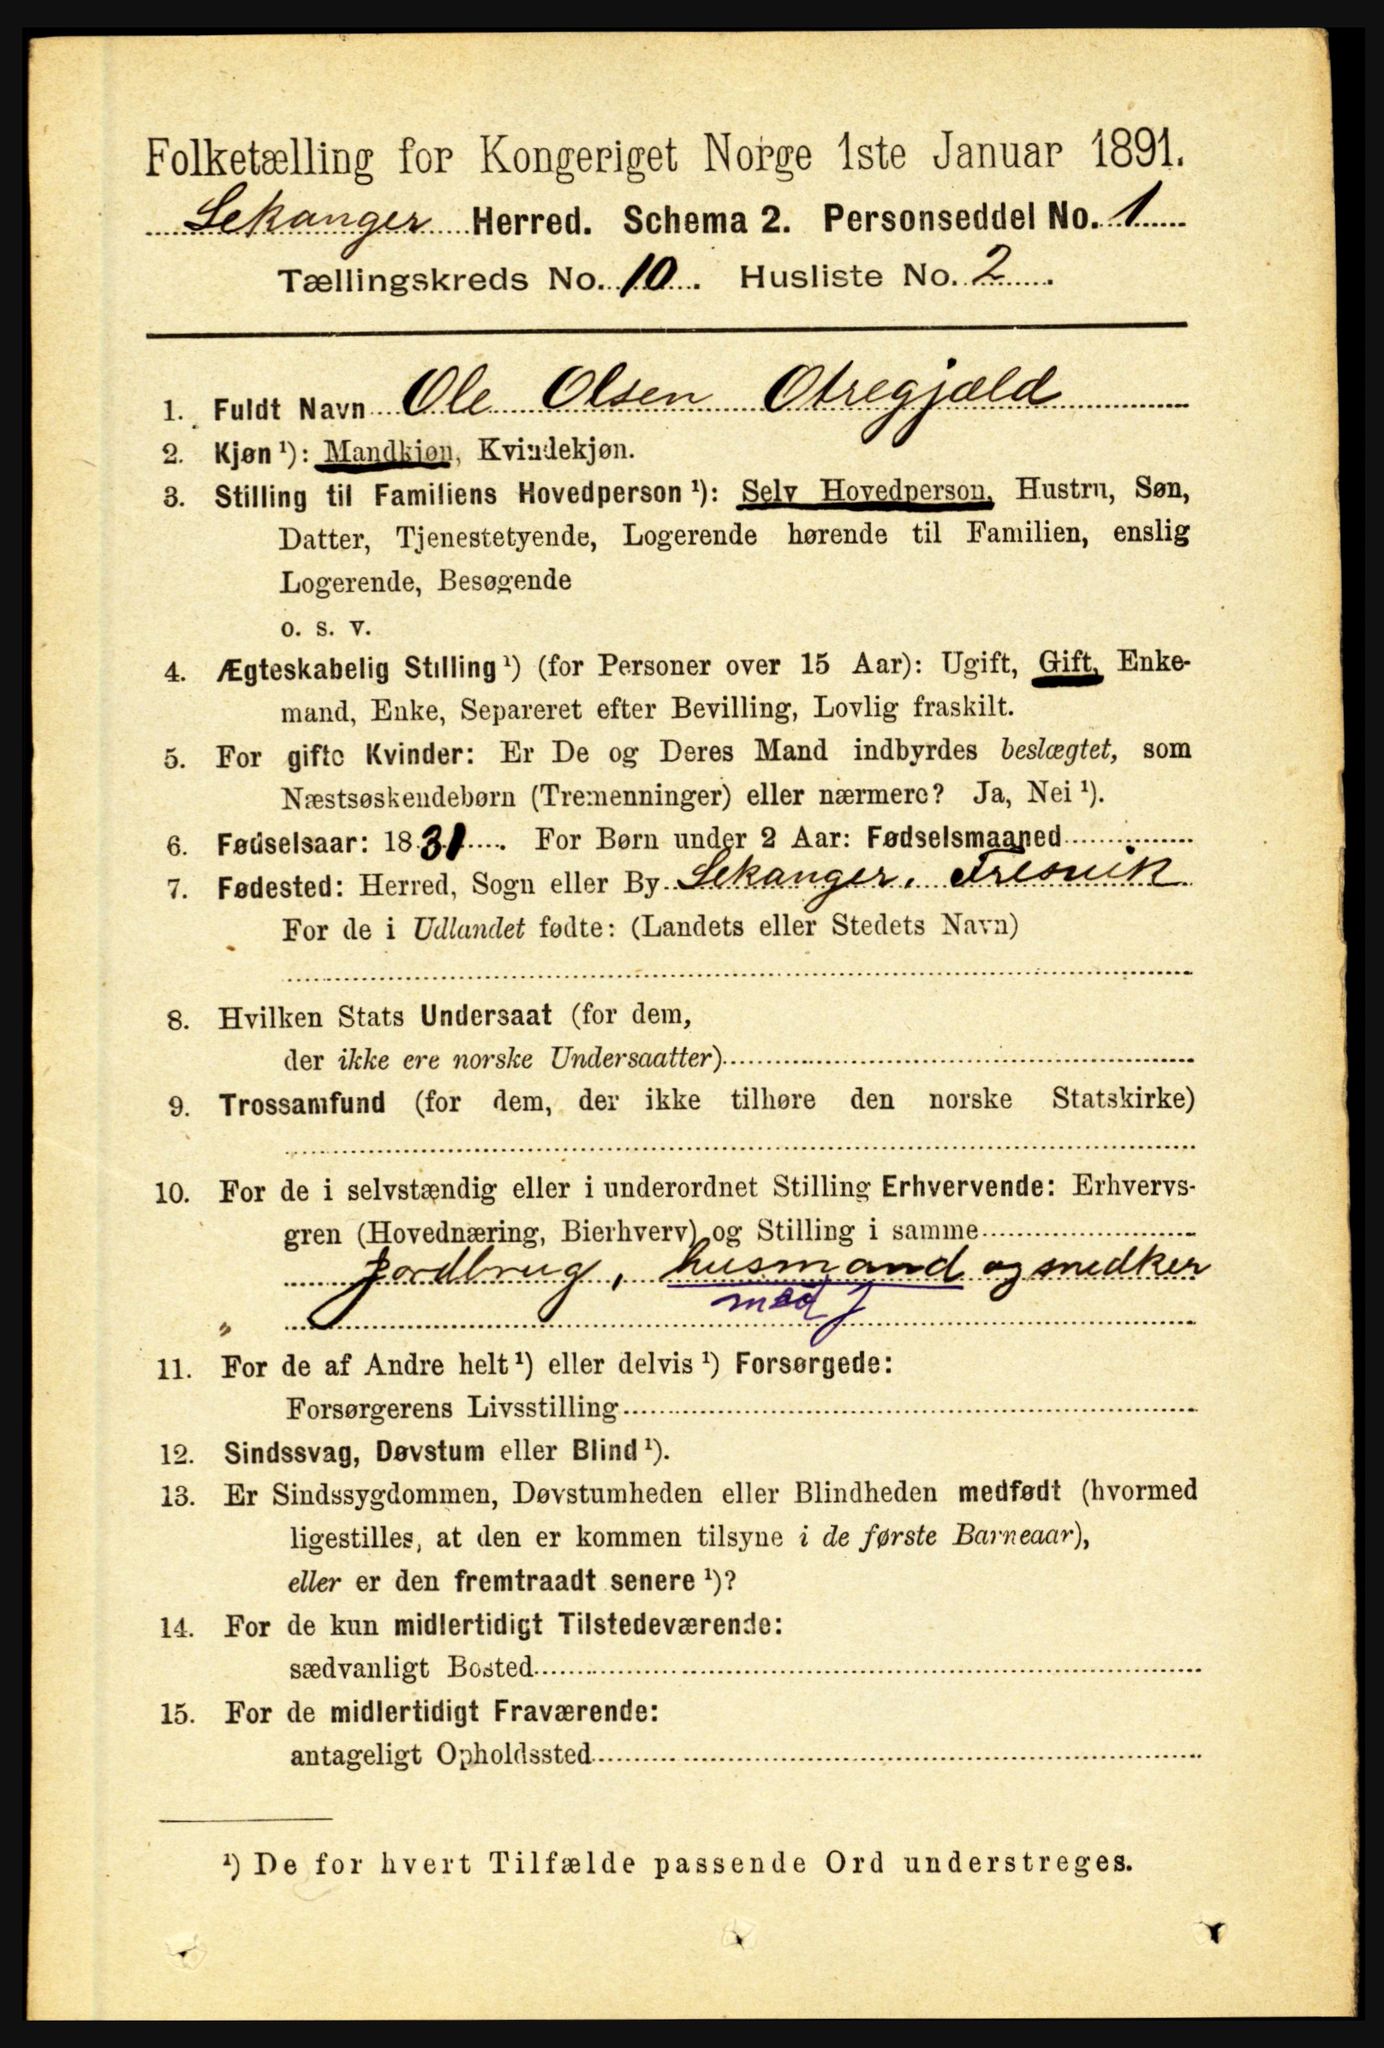 Folketælling for Kongeriget Norge 1ste Januar 1891.
Lekanger Herred. Schema 2. Personseddel No. 1
Tællingskreds No. 10. Husliste No. 2.
1. Fuldt Navn Ole Olsen Otregjæld
2. Kjøn ¹): Mandkjøn, Kvindekjøn.
3. Stilling til Familiens Hovedperson ¹): Selv Hovedperson, Hustru, Søn,
Datter, Tjenestetyende, Logerende hørende til Familien, enslig
Logerende, Besøgende
o. s. v.
4. Ægteskabelig Stilling ¹) (for Personer over 15 Aar): Ugift, Gift, Enke-
mand, Enke, Separeret efter Bevilling, Lovlig fraskilt.
5. For gifte Kvinder: Er De og Deres Mand indbyrdes beslægtet, som
Næstsøskendebørn (Tremenninger) eller nærmere? Ja, Nei ¹).
6. Fødselsaar: 1831. For Børn under 2 Aar: Fødselsmaaned
7. Fødested: Herred, Sogn eller By Lekanger, Fresvik
For de i Udlandet fødte: (Landets eller Stedets Navn)
8. Hvilken Stats Undersaat (for dem,
der ikke ere norske Undersaatter)
9. Trossamfund (for dem, der ikke tilhøre den norske Statskirke)
10. For de i selvstændig eller i underordnet Stilling Erhvervende: Erhvervs-
gren (Hovednæring, Bierhverv) og Stilling i samme
Jordbrug, husmand og snedker
" med J
11. For de af Andre helt ¹) eller delvis ¹) Forsørgede:
Forsørgerens Livsstilling
12. Sindssvag, Døvstum eller Blind ¹).
13. Er Sindssygdommen, Døvstumheden eller Blindheden medfødt (hvormed
ligestilles, at den er kommen tilsyne i de første Barneaar),
eller er den fremtraadt senere ¹)?
14. For de kun midlertidigt Tilstedeværende:
sædvanligt Bosted
15. For de midlertidigt Fraværende:
antageligt Opholdssted
¹) De for hvert Tilfælde passende Ord understreges.